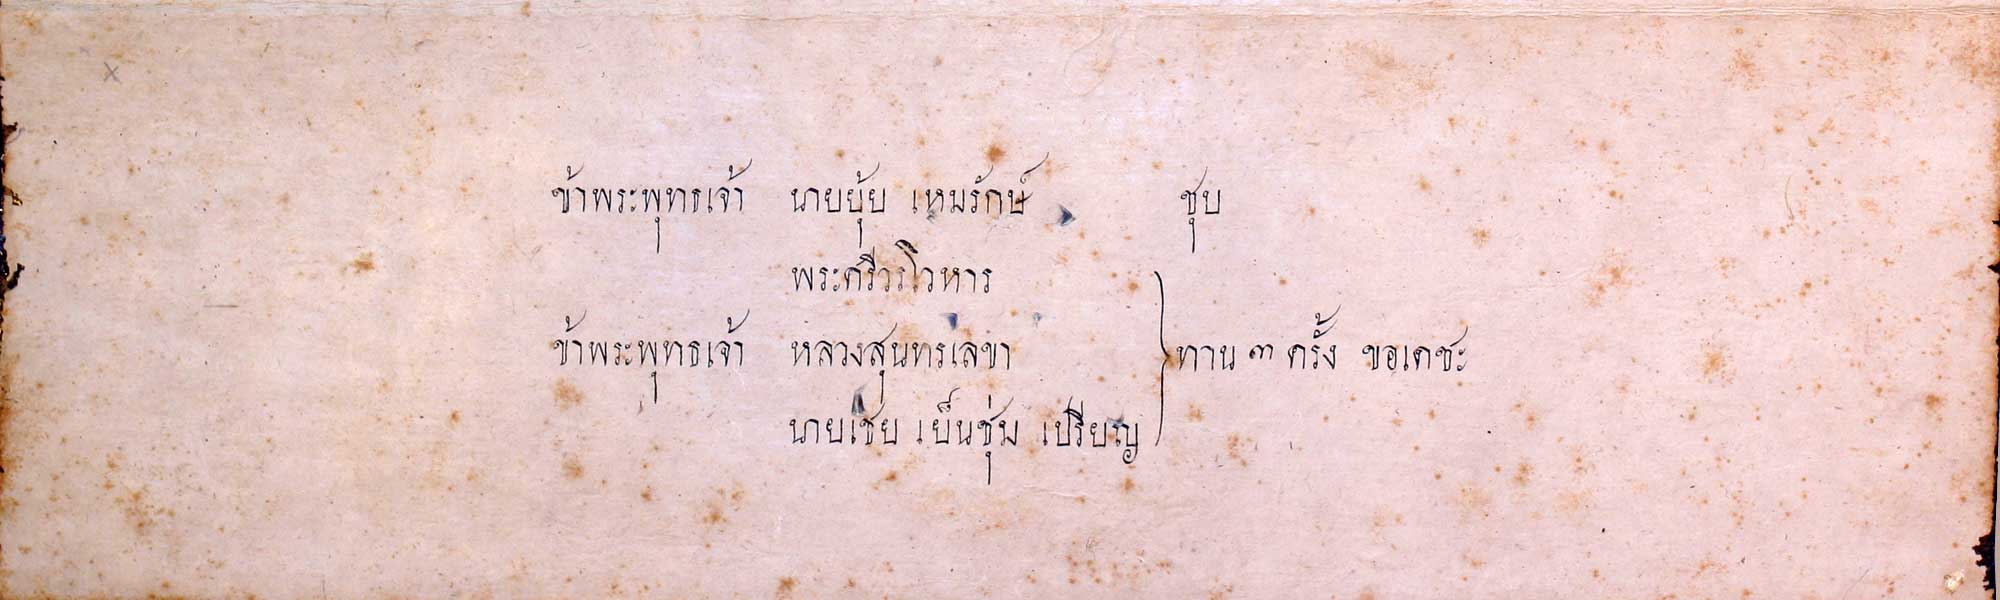 ข้าพระพุทธเจ้า นายยุ้ย เหมรักษ์ ชุบ
พระศรีวรโวหาร
ข้าพระพุทธเจ้า หลวงสุนทรเลขา ทาน ๓ ครั้ง ขอเดชะ
นายเชย เย็นชุ่ม เปรียญ